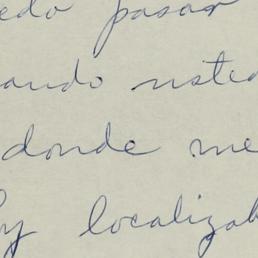 edo pasar
ando usted
donde me
y localizab